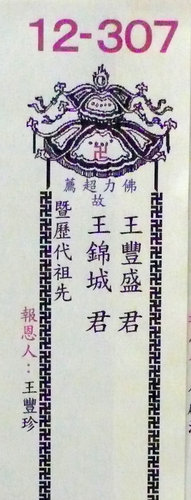 12-307
佛力超薦
故
王豐盛 君
王錦城 君
暨歷代祖先
報恩人：王豐珍